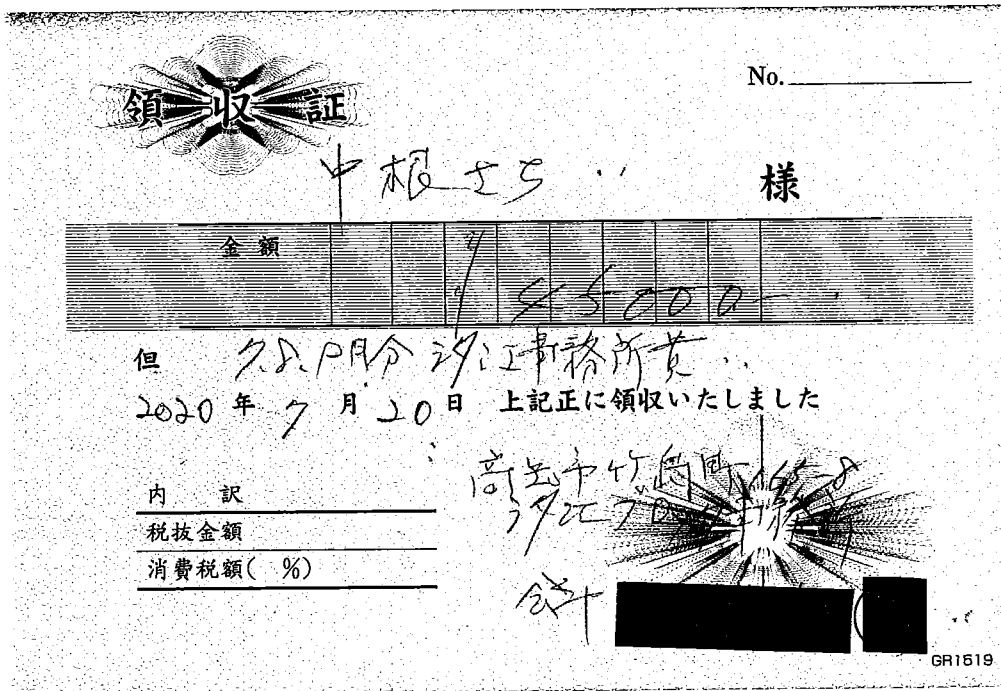 No.
領収証
中根さち 様
金額 ¥45000-
但 7.8.9月分 汐江事務所費
2020年7月20日 上記正に領収いたしました
内 訳
税抜金額
消費税額( %)
会計
GR1519